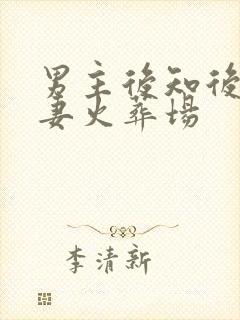 男主後知後
妻火葬場
李清新